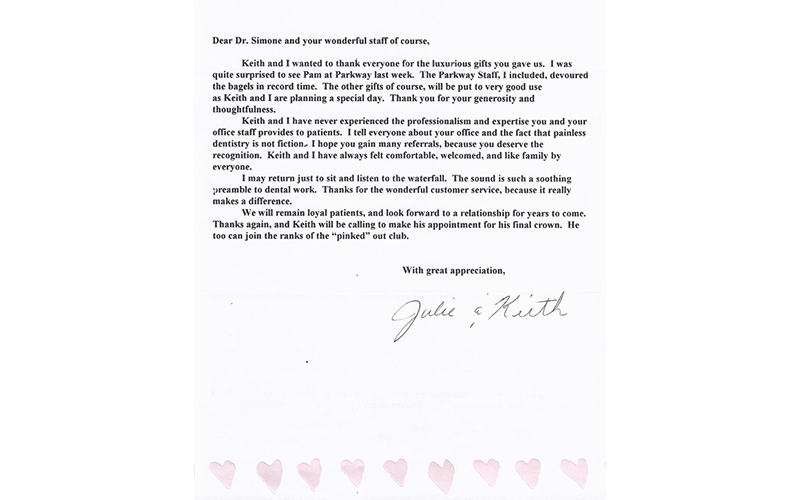 Dear Dr. Simone and your wonderful staff of course,
Keith and I wanted to thank everyone for the luxurious gifts you gave us. I was
quite surprised to see Pam at Parkway last week. The Parkway Staff, I included, devoured
the bagels in record time. The other gifts of course, will be put to very good use
as Keith and I are planning a special day. Thank you for your generosity and
thoughtfulness.
Keith and I have never experienced the professionalism and expertise you and your
office staff provides to patients. I tell everyone about your office and the fact that painless
dentistry is not fiction. I hope you gain many referrals, because you deserve the
recognition. Keith and I have always felt comfortable, welcomed, and like family by
everyone.
I may return just to sit and listen to the waterfall. The sound is such a soothing
preamble to dental work. Thanks for the wonderful customer service, because it really
makes a difference.
We will remain loyal patients, and look forward to a relationship for years to come.
Thanks again, and Keith will be calling to make his appointment for his final crown. He
too can join the ranks of the “pinked” out club.
With great appreciation,
Julie & Keith